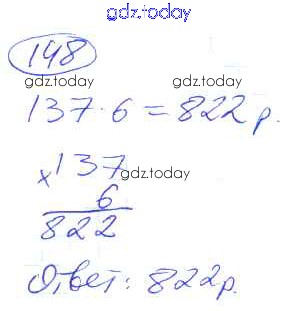 gdz.today
148
gdz.today gdz.today
137 · 6 = 822 р.
× 137 gdz.today
6
822
Ответ: 822р.